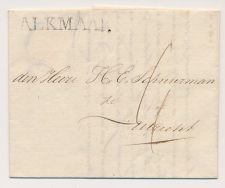 ALKMAAR.
den Heere H. C. Schuurman
te
Utrecht